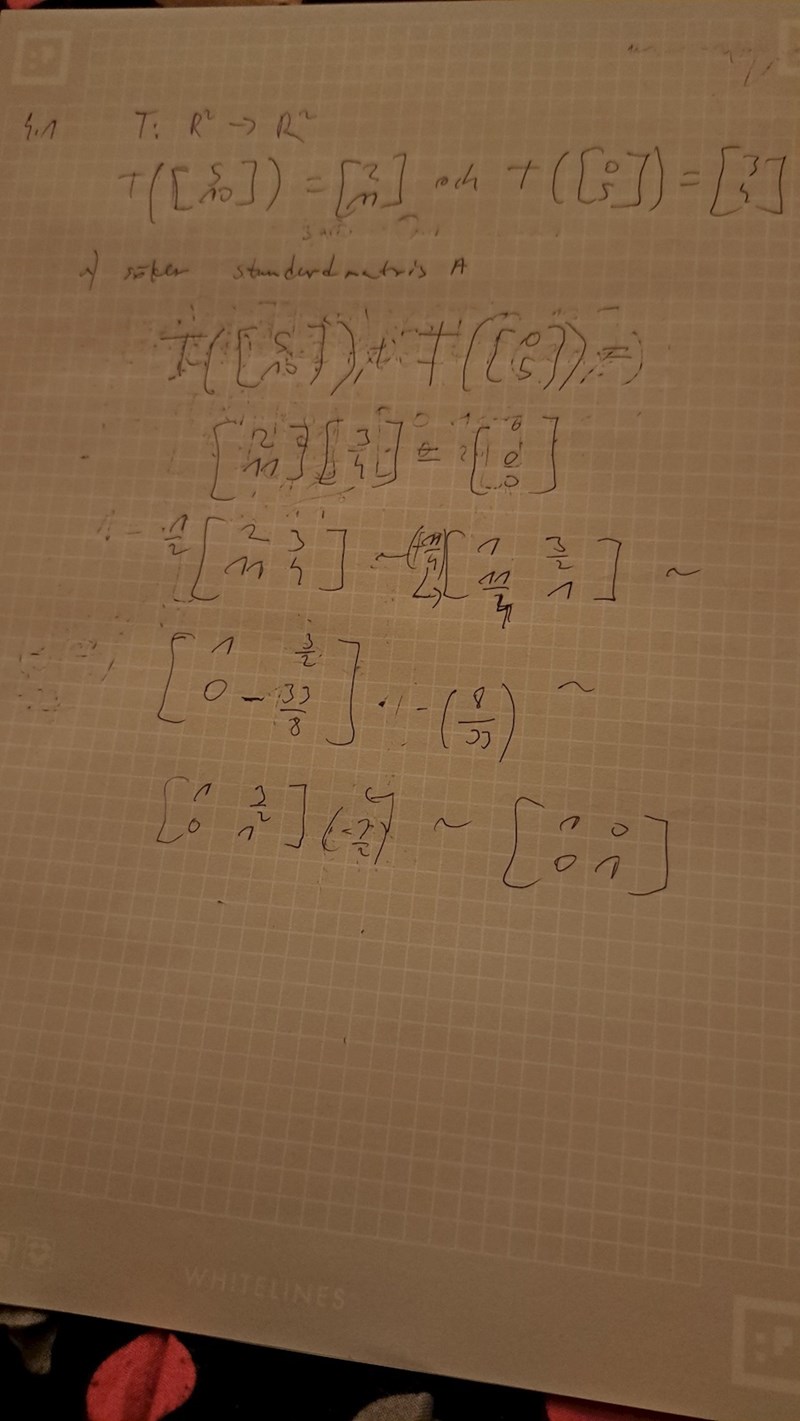 4.1 T: R² → R²
T([5 10]) = [2 11] och T([0 5]) = [3 4]
a) söker standardmatris A
T([5 10]), T([0 5])
[2 11][3 4] = [0 0]
1/2 [2 3 11 4] ~ [1 3/2 11/4 1] ~
[1 3/2 0 -33/8] · -(8/33) ~
[1 3/2 0 1] (-3/2) ~ [1 0 0 1]
WHITELINES